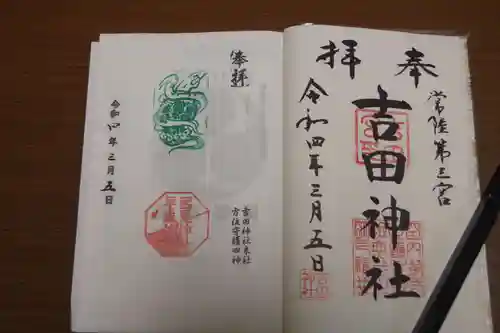 奉拝
常陸第三宮
吉田神社
令和四年三月五日
奉拝
吉田神社末社
方位守護四神
令和四年三月五日